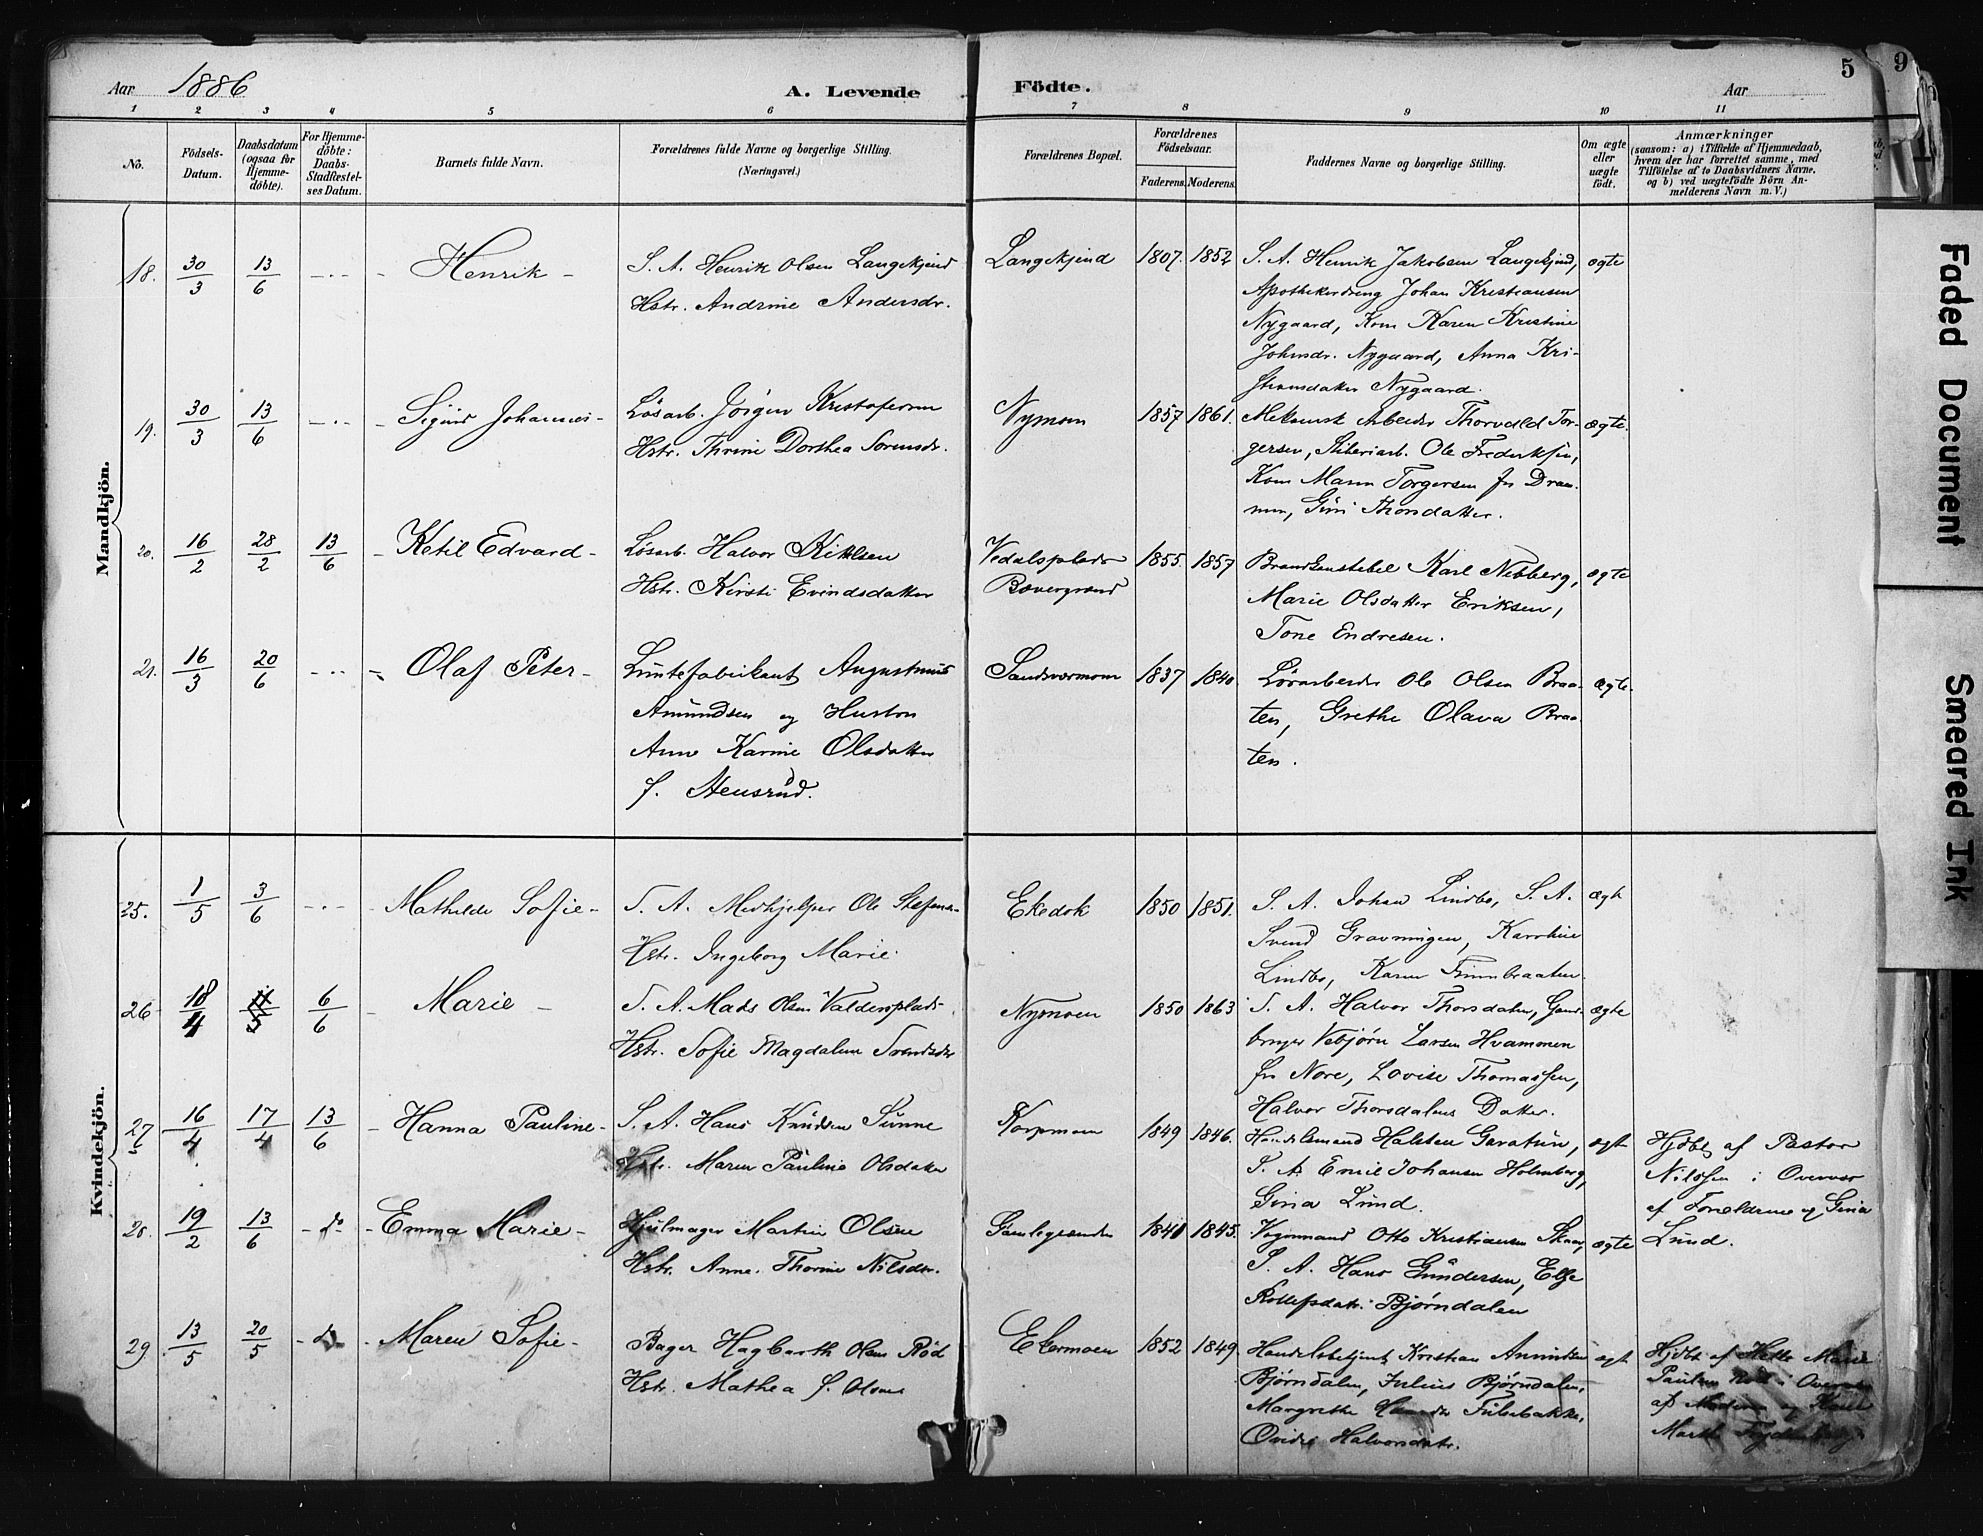 Aar 1886
A. Levende
Födte.
Aar
5
9
1 2 3 4 5 6 7 8 9 10 11
No.
Födsels-
Datum.
Daabsdatum
(ogsaa for
Hjemme-
döbte).
For Hjemme-
döbte:
Daabs-
Stadfæstel-
ses Datum.
Barnets fulde Navn.
Forældrenes fulde Navne og borgerlige Stilling.
(Næringsvei.)
Forældrenes Bopæl.
Forældrenes
Födselsaar.
Faderens. Moderens.
Faddernes Navne og borgerlige Stilling.
Om ægte
eller
uægte
födt.
Anmærkninger
(saasom: a) i Tilfælde af Hjemmedaab,
hvem der har forrettet samme, med
Tilföielse af to Daabsvidners Navne,
og b) ved uægtefödte Börn An-
melderens Navn m. V.)
Mandkjön.
18. 30/3 13/6 - Henrik -
S. A. Henrik Olsen Langekjend
Hstr. Andrine Andersdr.
Langekjend 1807. 1852
S. A. Henrik Jakobsen Langekjend,
Apothekerdreng Johan Kristiansen
Nygaard, Kone Karen Kristine
Johnsdr. Nygaard, Anna Kri-
stiansdatter Nygaard.
ægte
19. 30/3 13/6 - Sigurd Johannes -
Løsarb. Jörgen Kristofersen
Hstr. Thrine Dorthea Sorensdr.
Nymoen 1857 1861.
Mekanisk Arbeider Thorvald Tor-
gersen, Sliberiarb. Ole Fredriksen,
Kone Maren Torgersen fra Dram-
men, Gini Thorsdatter.
ægte.
20. 16/2 28/2 13/6 - Ketil Edvard -
Løsarb. Halvor Kittilsen
Hstr. Kirsti Evindsdatter
Vedalsplads
Bævergrænd
1855. 1857
Brandkonstabel Karl Nebberg,
Marie Olsdatter Eriksen,
Tone Endresen.
ægte
21. 16/3 20/6 - Olaf Peter -
Luntefabrikant Augustinus
Amundsen og Hustru
Anne Karine Olsdatter
f. Stensrud.
Sandsværmoen 1837 1840.
Løsarbeider Ole Olsen Braa-
ten, Grethe Olava Braa-
ten.
ægte.
Kvindekjön.
25. 1/5 3/6 - Mathilde Sofie -
S. A. Medhjelper Ole Stefens.
Hstr. Ingeborg Marie.
Ekedok 1850 1851.
S. A. Johan Lindbo, S. A.
Svend Gravningen, Karoline
Lindbo, Karen Finnbraaten.
ægte
26 18/4 11/5 6/6 Marie -
S. A. Mads Olsen Valdersplads.
Hstr. Sofie Magdalene Svendsdr
Nymoen 1850 1863
S. A. Halvor Thorsdalen, Gaard-
bruger Vebjørn Larsen Hvammen
fra Nore, Lovise Thomassen,
Halvor Thorsdalens Datter.
ægte
27 16/4 17/4 13/6 - Hanna Pauline -
S. A. Hans Knudsen Sunne
Hstr. Maren Pauline Olsdatter
Korpmoen 1849 1846.
Handelsmand Halsten Garatun,
S. A. Emil Johansen Holmberg,
Gina Lund.
ægte
Hjdbt af Pastor
Nilssen i Overvær
af Forældrene og Gina
Lund.
28. 19/2 13/6 - do - Emma Marie -
Hjulmager Martin Olsen
Hstr. Anne Thorine Nilsdr.
Gamlegrænden 1841 1845.
Vognmand Otto Kristiansen Skaar,
S. A. Hans Gundersen, Else
Rollefsdatr. Bjørndalen
ægte
29 13/5 20/5 - do - Maren Sofie -
Bager Hagbarth Olsen Röd
Hstr. Mathea f. Olsen
Ekermoen 1852 1849.
Handelsbetjent Kristian Amundsen
Bjørndalen, Julius Bjørndalen,
Margrethe Fulsebakke,
Halvorsdatr.
ægt
Hjdbt af Helle Marie
Paulsen Röd i Overvær
af Moderen og
Marth
Faded Document
Smeared Ink